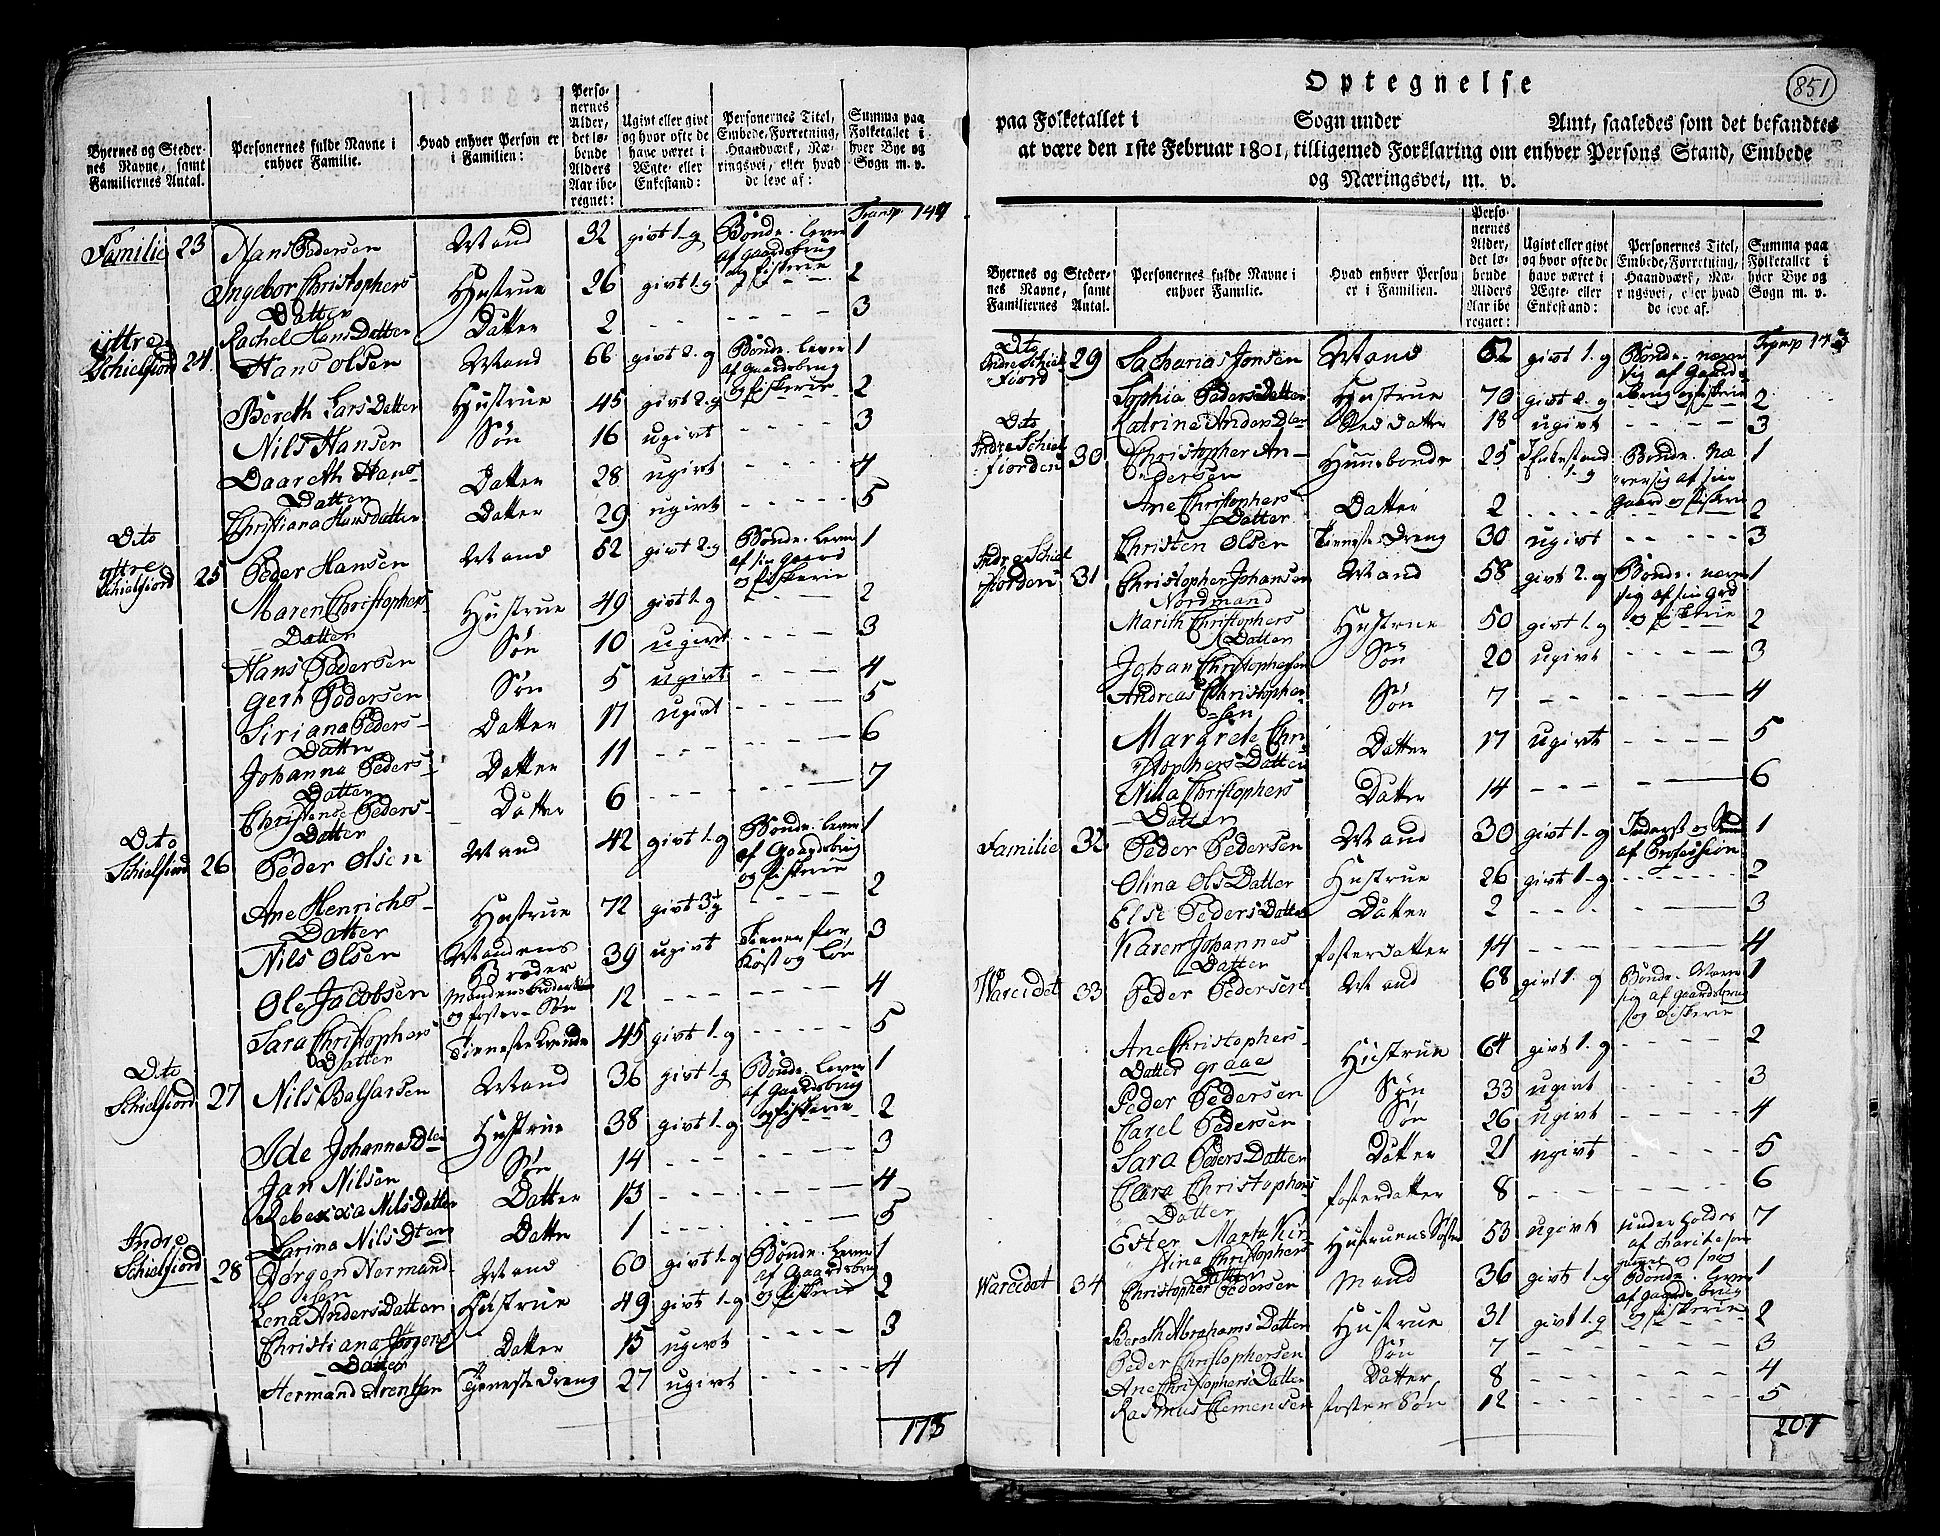 Byernes og Steder-
nes Navne, samt
Familiernes Antal.
Personernes fulde Navne i
enhver Familie.
Hvad enhver Person er
i Familien:
Perso-
nernes
Alder,
det lø-
bende
Alders
Aar ibe-
regnet:
Ugivt eller givt
og hvor ofte de
have været i
Ægte- eller
Enkestand:
Personernes Titel,
Embede, Forretning,
Haandværk, Næ-
ringsvei, eller hvad
de leve af:
Summa paa
Folketallet i
hver Bye og
Sogn m. v.
Transp. 147
Familie 23 Hans Pedersen Mand 32 givt 1-g Bonde. lever 1
af gaardsbrug
og fiskerie
Ingebor Christophers Hustrue 26 givt 1.g 2
Datter
Rachel Hans Datter Datter 2 3
yttre
Schielfiord 24 Hans Olsen Mand 66 givt 2.g Bonde. lever 1
af Gaardsbrug
og fiskerie
Bereth Lars Datter Hustrue 45 givt 2.g 2
Nils Hansen Søn 16 ugivt 3
Daareth Hans- Datter 28 ugivt 4
Datter
Christiana Hansdatter Datter 29 ugivt 5
Dito
yttre
Schielfiord 25 Peder Hansen Mand 52 givt 2.g Bonde. lever 1
af sin gaard
og fiskerie
Maren Christophers Hustrue 49 givt 1.g 2
Datter
Hans Pedersen Søn 10 ugivt 3
Gert Pedersen Søn 5 ugivt 4
Siriana Peders- Datter 17 ugivt 5
Datter
Johanna Peders- Datter 11 6
Datter
Christense Peders- Datter 6 7
Datter
Dito
Schielfiord 26 Peder Olsen Mand 42 givt 1-g Bonde. lever 1
af Gaardsbrug
og fiskerie
Ane Henrichs- Hustrue 72 givt 3.g 2
Datter
Nils Olsen Mandens 39 ugivt Tiener for 3
Broder Kost og Løn
Ole Jacobsen Mandens 12 4
og foster-Søn
Sara Christophers Tieneste Kvinde 45 givt 1-g 5
Datter
Dito
Schielfiord 27 Nils Balsarsen Mand 36 givt 1-g Bonde. lever 1
af Gaardsbrug
og fiskerie
Ide Johannes Dter Hustrue 38 givt 1-g 2
Jan Nilsen Søn 14 3
Rebexxa Nils Datter Datter 13 4
Larina Nils Dter Datter 1 5
Indre
Schielfiord 28 Jørgen Normand- Mand 60 givt 1-g Bonde. lever 1
sen af Gaardsbrug
og fiskerie
Lena Anders Datter Hustrue 49 givt 1-g 2
Christiana Jørgens Datter 15 ugivt 3
Datter
Hermand Arentsen Tjeneste Dreng 27 ugivt 4
173
851
Optegnelse
paa Folketallet i Sogn under Amt, saaledes som det befandtes
at være den 1ste Februar 1801, tilligemed Forklaring om enhver Persons Stand, Embede
og Næringsvei, m. v.
Byernes og Steder-
nes Navne, samt
Familiernes Antal.
Personernes fulde Navne i
enhver Familie.
Hvad enhver Person
er i Familien.
Perso-
nernes
Alder,
det lø-
bende
Alders
Aar ibe-
regnet:
Ugivt eller givt
og hvor ofte de
have været i
Ægte- eller
Enkestand:
Personernes Titel,
Embede, Forretning,
Haandværk, Næ-
ringsvei, eller hvad
de leve af.
Summa paa
Folketallet i
hver Bye og
Sogn m. v.
Transp 173
Dito
Indre Schiel
fiord 29 Sacharias Jonsen Mand 62 givt 1.g Bonde. nærer 1
sig af Gaards-
brug og fiskerie
Sophia Peders Datter Hustrue 70 givt 2.g 2
Katrine Anders Dter Sted datter 18 ugivt 3
Dito
Indre Schiel
fiorden 30 Christopher An- Huusbonde 25 Enkestand Bonde. Næ 1
dersen 1-g rer sig af sin
Gaard og fiskerie
Ane Christophers Datter 2 2
Datter
Christen Olsen Tieneste Dreng 30 ugivt 3
Indre Schiel
fiorden 31 Christopher Johansen Mand 58 givt 2.g Bonde. nærer 1
Nordmand sig af sin Grd
og fiskerie
Marith Christophers Hustrue 50 givt 1.g 2
Datter
Johan Christophersen Søn 20 ugivt 3
Andreas Christopher Søn 7 4
sen
Margrete Chri Datter 17 ugivt 5
stophers Datter
Nilla Christophers Datter 14 6
Datter
Familie 32 Peder Pedersen Mand 30 givt 1-g Inderst og 1
af Profession
Olina Ols Datter Hustrue 26 givt 1-g 2
Else Peders Datter Datter 2 3
Karen Johannes fosterdatter 14 4
Datter
Wareidet 33 Peder Pedersen Mand 68 givt 1.g Bonde. Nærer 1
sig af gaardsbrug
og Fiskerie
Ane Christophers- Hustrue 64 givt 1-g 2
Datter graae
Peder Pedersen Søn 33 ugivt 3
Carel Pedersen Søn 26 ugivt 4
Sara Peders Datter Datter 21 ugivt 5
Clara Christophers fosterdatter 8 6
Datter
Ester Marta Kir Hustruens Søster 53 ugivt underholdes 7
stina Christophers
Datter
Wareidet 34 Christopher Pedersen Mand 36 givt 1-g Bonde. lever 1
af Gaardsbrug
og fiskerie
Bereth Abrahams Datter Hustrue 31 givt 1.g 2
Peder Christophersen Søn 7 3
Ane Christophers Datter Datter 8 4
Rasmus Clemensen foster Søn 12 5
201